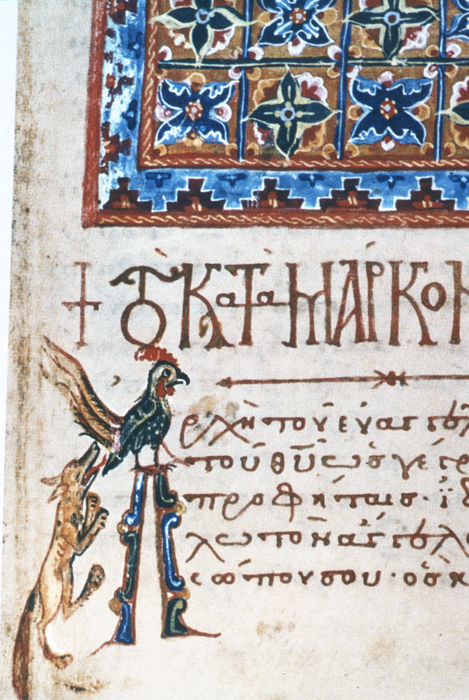 + Τὸ κατὰ Μάρκον
Αρχὴ τοῦ εὐαγγελ
τοῦ θῦ ὡς γέγρ
προφήταις· ἰδ
λω τὸν ἄγγελο
σώπου σου· ὃς κ